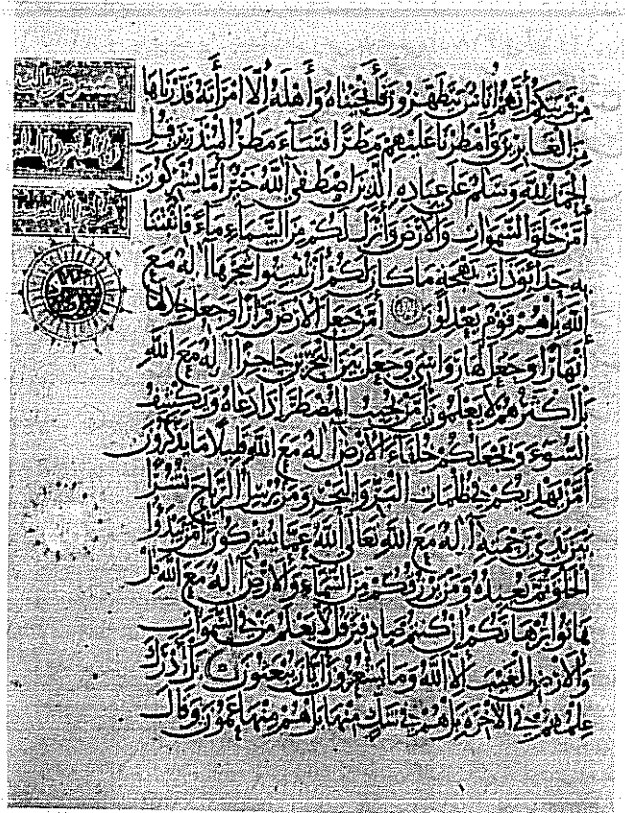 من قريتكم إنهم أناس يتطهرون فأنجيناه وأهله إلا امرأته قدرناها
من الغابرين وأمطرنا عليهم مطرا فساء مطر المنذرين قل
الحمد لله وسلام على عباده الذين اصطفى آلله خير أما يشركون
أمن خلق السموات والأرض وأنزل لكم من السماء ماء فأنبتنا
به حدائق ذات بهجة ما كان لكم أن تنبتوا شجرها أاله مع
الله بل هم قوم يعدلون أمن جعل الأرض قرارا وجعل خلالها
أنهارا وجعل لها رواسي وجعل بين البحرين حاجزا أاله مع الله
بل أكثرهم لا يعلمون أمن يجيب المضطر إذا دعاه ويكشف
السوء ويجعلكم خلفاء الأرض أاله مع الله قليلا ما تذكرون
أمن يهديكم في ظلمات البر والبحر ومن يرسل الرياح نشرا
بين يدي رحمته أاله مع الله تعالى الله عما يشركون أمن يبدؤا
الخلق ثم يعيده ومن يرزقكم من السماء والأرض أاله مع الله قل
هاتوا برهانكم إن كنتم صادقين قل لا يعلم من في السموات
والأرض الغيب إلا الله وما يشعرون أيان يبعثون بل ادرك
علمهم في الآخرة بل هم في شك منها بل هم منها عمون وقال